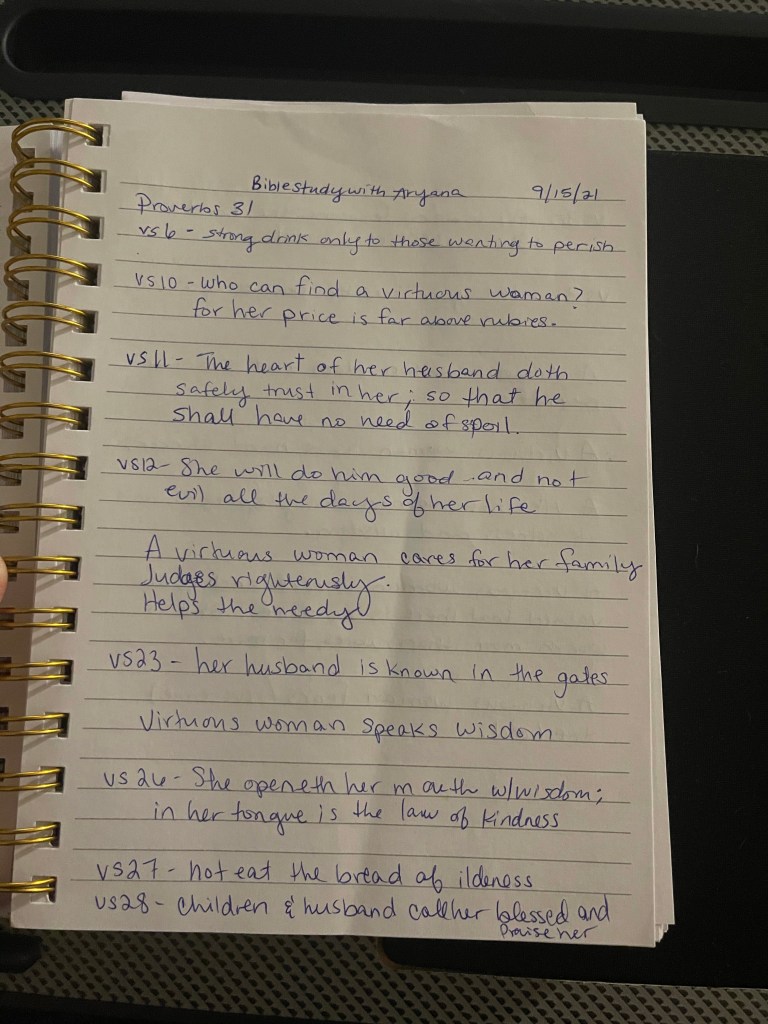 Bible study with Aryana 9/15/21
Proverbs 31
vs 6 - strong drink only to those wanting to perish
vs 10 - who can find a virtuous woman?
for her price is far above rubies.
vs 11 - The heart of her husband doth
safely trust in her; so that he
shall have no need of spoil.
vs12 - She will do him good and not
evil all the days of her life
A virtuous woman cares for her family
Judges righteously.
Helps the needy
vs23 - her husband is known in the gates
Virtuous woman speaks wisdom
vs 26 - She openeth her mouth w/wisdom;
in her tongue is the law of kindness
vs27 - not eat the bread of ildeness
vs28 - children & husband call her blessed and
Praise her